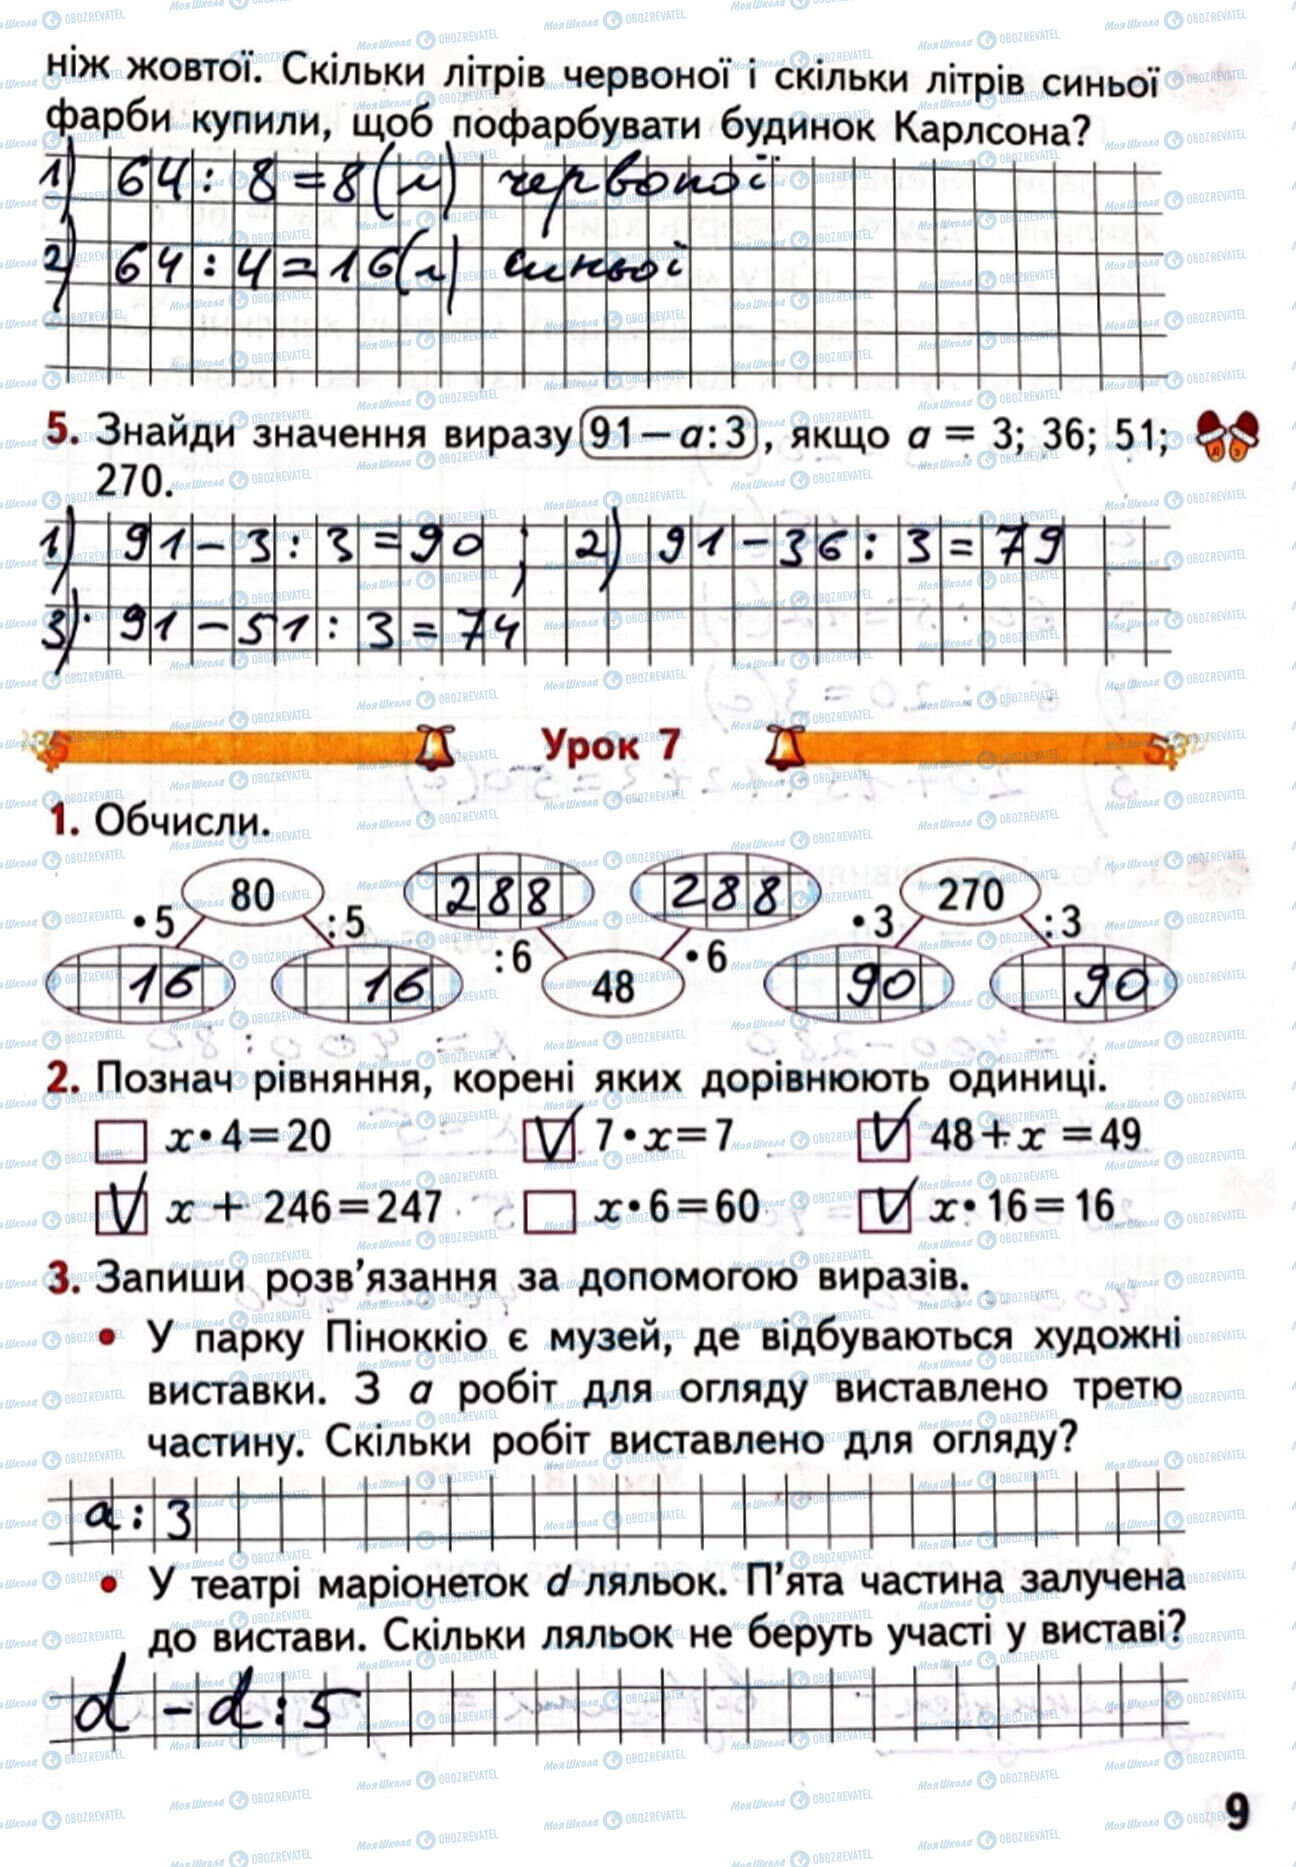 ніж жовтої. Скільки літрів червоної і скільки літрів синьої
фарби купили, щоб пофарбувати будинок Карлсона?
1) 64 : 8 = 8 (л) червоної
2) 64 : 4 = 16 (л) синьої
5. Знайди значення виразу 91 – a : 3, якщо a = 3; 36; 51;
270.
1) 91 – 3 : 3 = 90 ; 2) 91 – 36 : 3 = 79
3) 91 – 51 : 3 = 74
Урок 7
1. Обчисли.
80 288 288 270
•5 :5 :6 •6 •3 :3
16 16 48 90 90
2. Познач рівняння, корені яких дорівнюють одиниці.
x•4=20 V 7•x=7 V 48+x=49
V x + 246=247 x•6=60 V x•16=16
3. Запиши розв’язання за допомогою виразів.
• У парку Піноккіо є музей, де відбуваються художні
виставки. З a робіт для огляду виставлено третю
частину. Скільки робіт виставлено для огляду?
a : 3
• У театрі маріонеток d ляльок. П’ята частина залучена
до вистави. Скільки ляльок не беруть участі у виставі?
d – d : 5
9